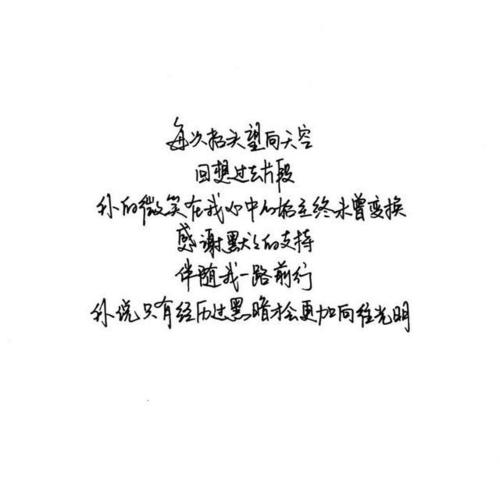 每次抬头望向天空
回想过去片段
你的微笑在我心中始终未曾变换
感谢默默的支持
伴随我一路前行
你说只有经历过黑暗才会更加向往光明